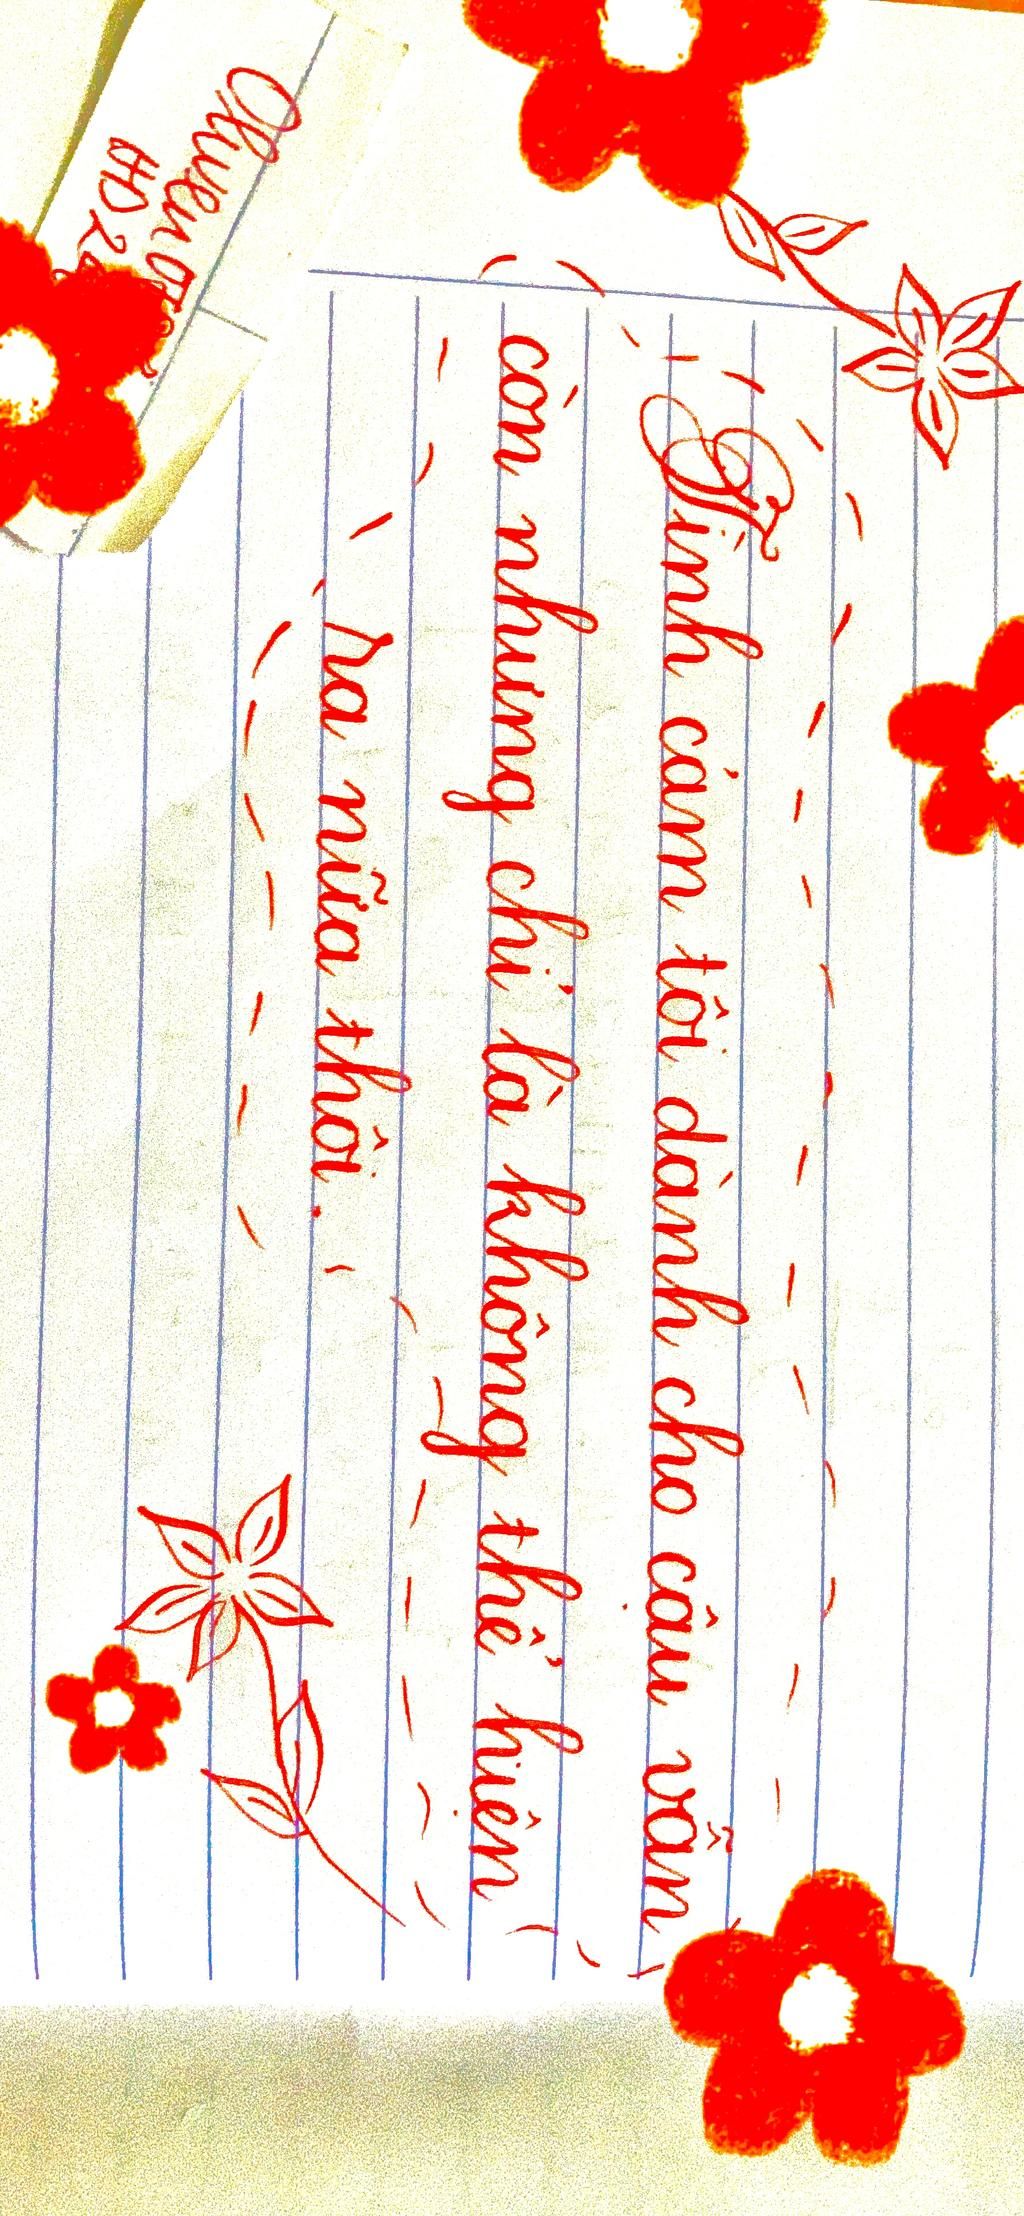 Tình cảm tôi dành cho cậu vẫn
còn nhưng chỉ là không thể hiện
ra nữa thôi.